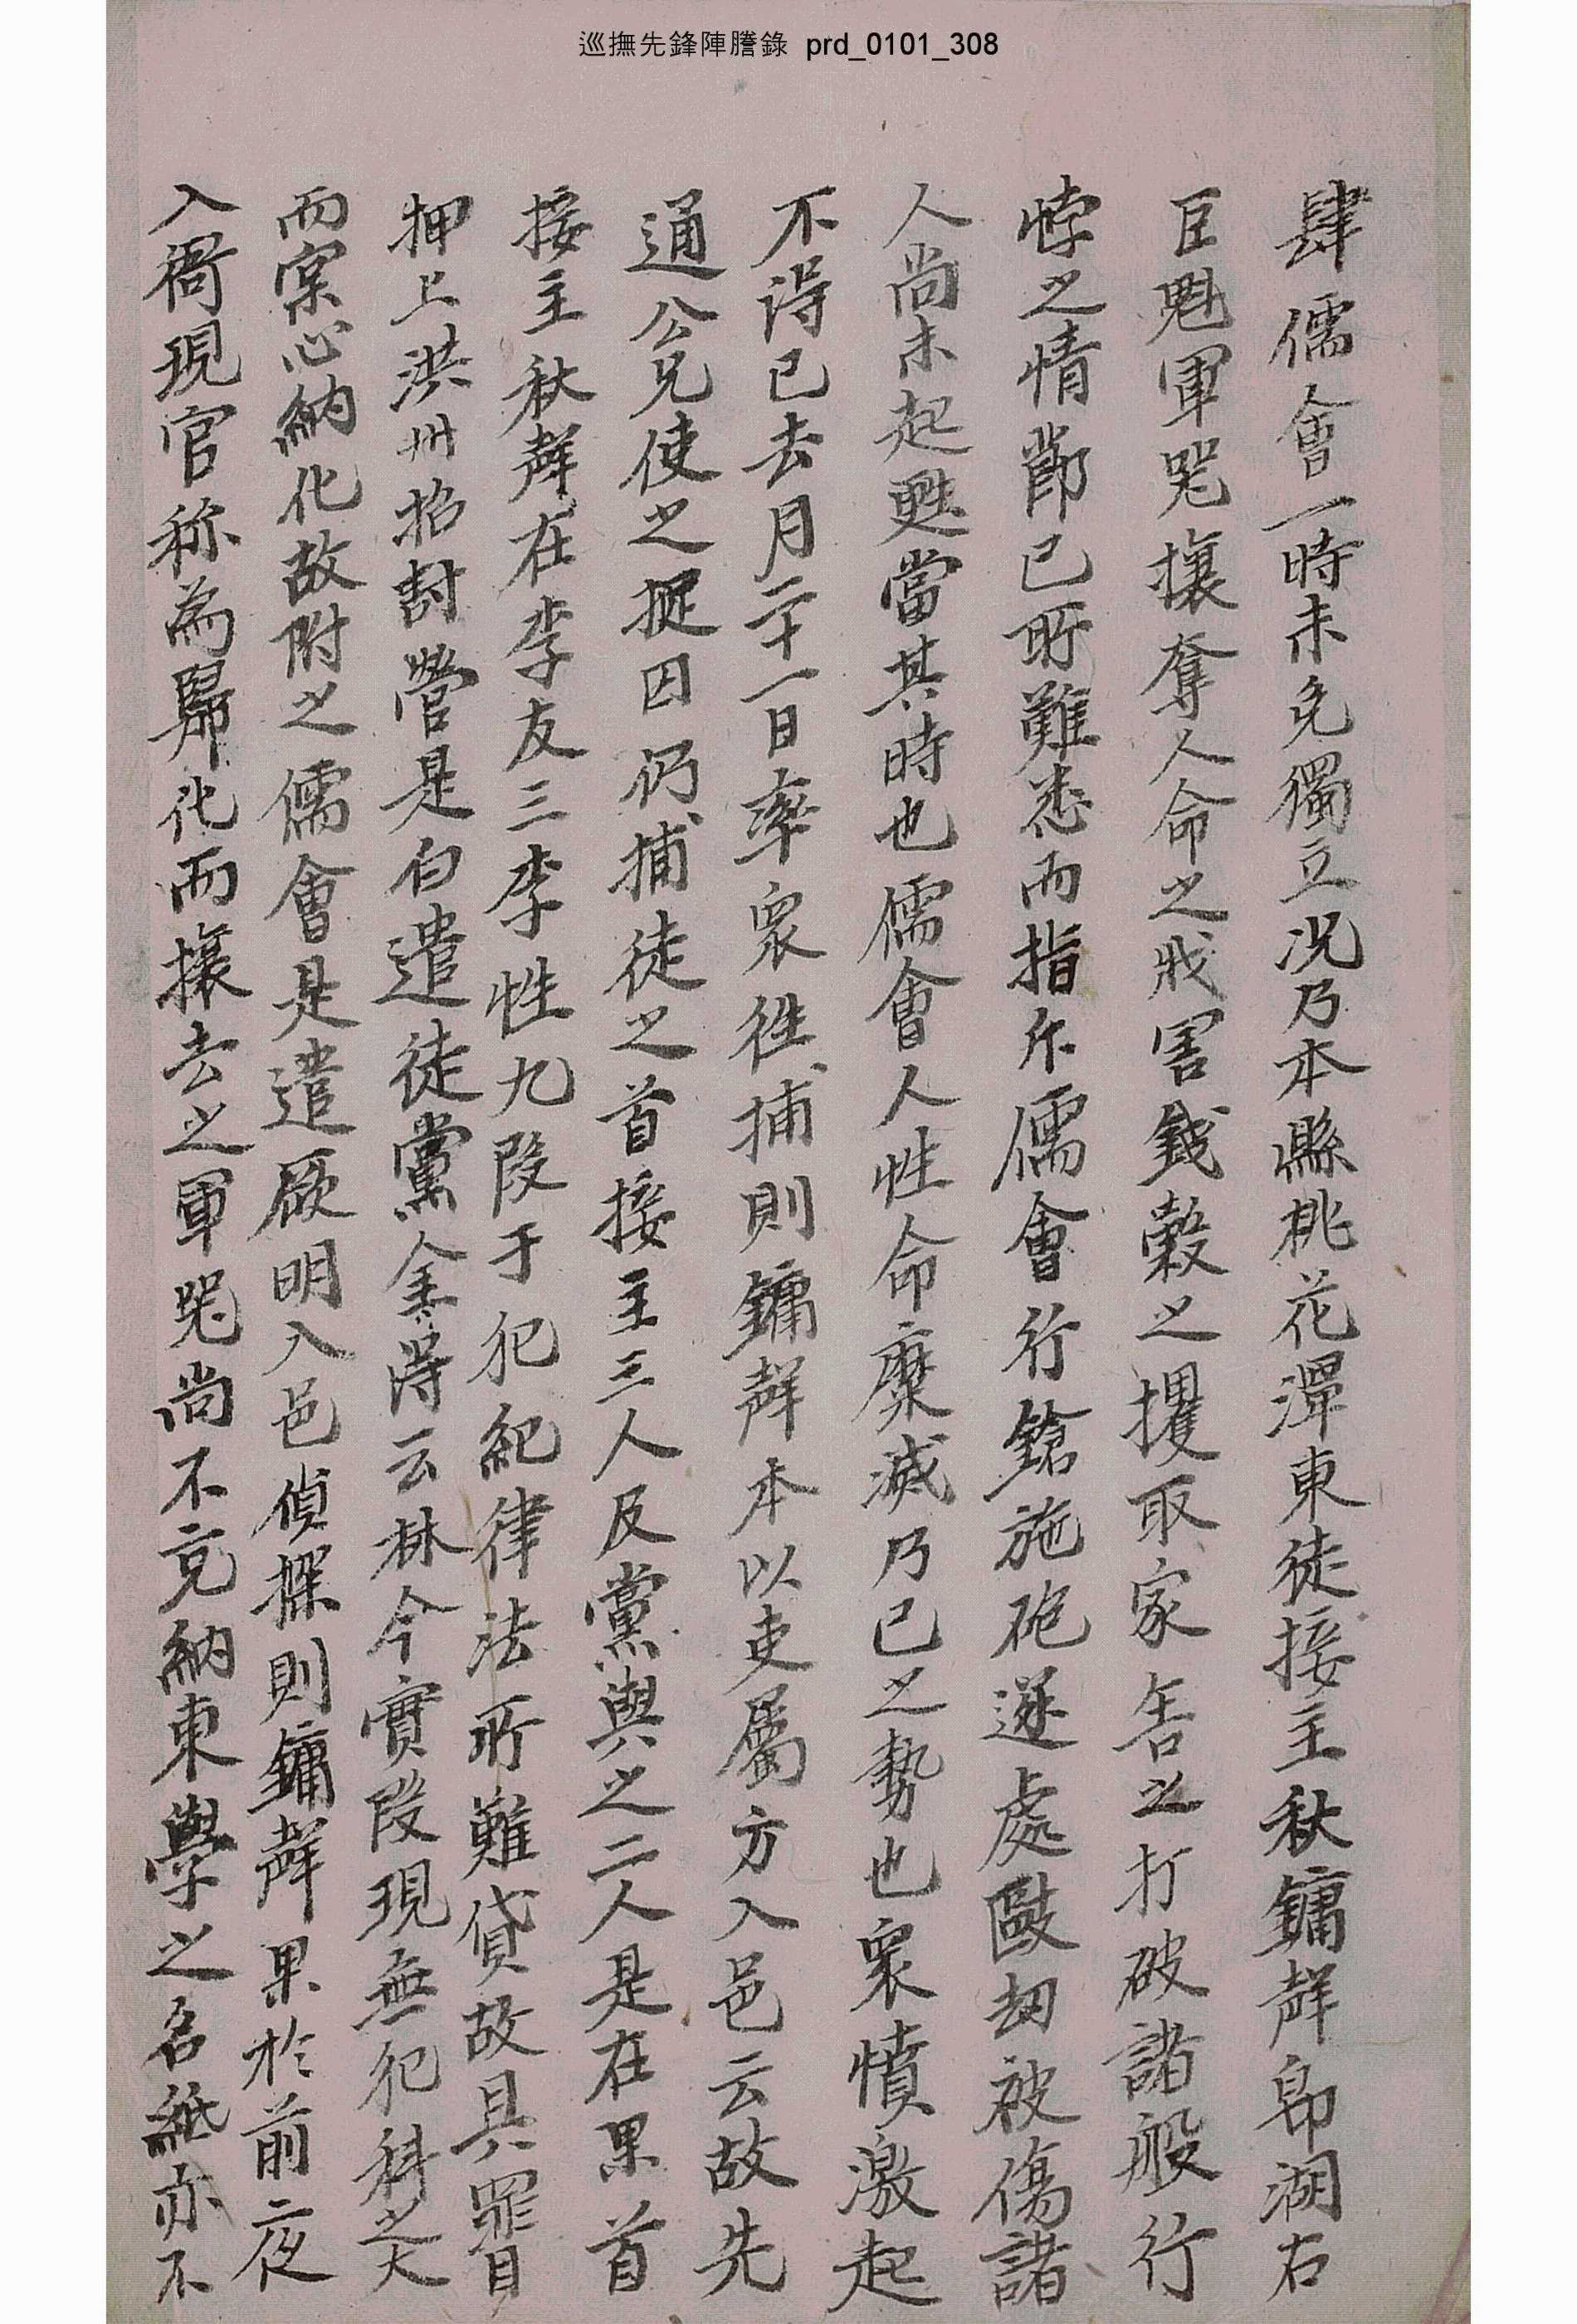 巡撫先鋒陣謄錄 prd_0101_308
肆儒會一時未免獨立况乃本縣桃花潭東徒接主秋鏞聲即湖右
巨魁軍咒攘奪人命之戕害錢穀之攫取家舍之打破諸般行
悖之情節已所難悉而指斥儒會行鎗施砲逐處毆刼被傷諸
人尙未起甦當其時也儒會人性命糜滅乃已之勢也衆憤激起
不得已去月二十一日率衆往捕則鏞聲本以吏屬方入邑云故先
通公兄使之捉囚仍捕徒之首接主三人及黨與之二人是在果首
接主秋聲在李友三李性九段于犯紀律法所難貸故具罪目
押上洪州招討營是白遣徒黨金得云林今實段現無犯科之大
而案心納化故附之儒會是遣厥明入邑偵探則鏞聲果於前夜
入衙現官称為歸化而攘去之軍咒尙不克納東學之名紙亦不